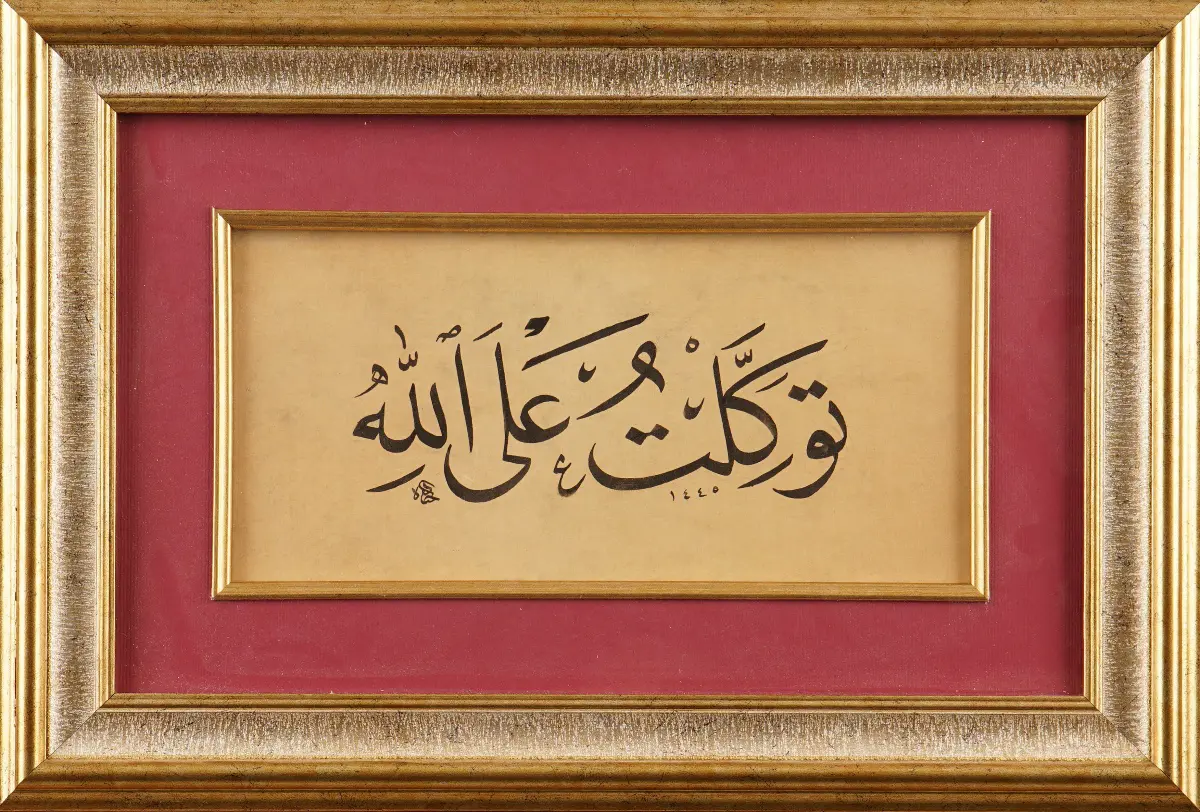 تَوَكَّلْتُ عَلَى ٱللّٰهِ
١٤٤٥